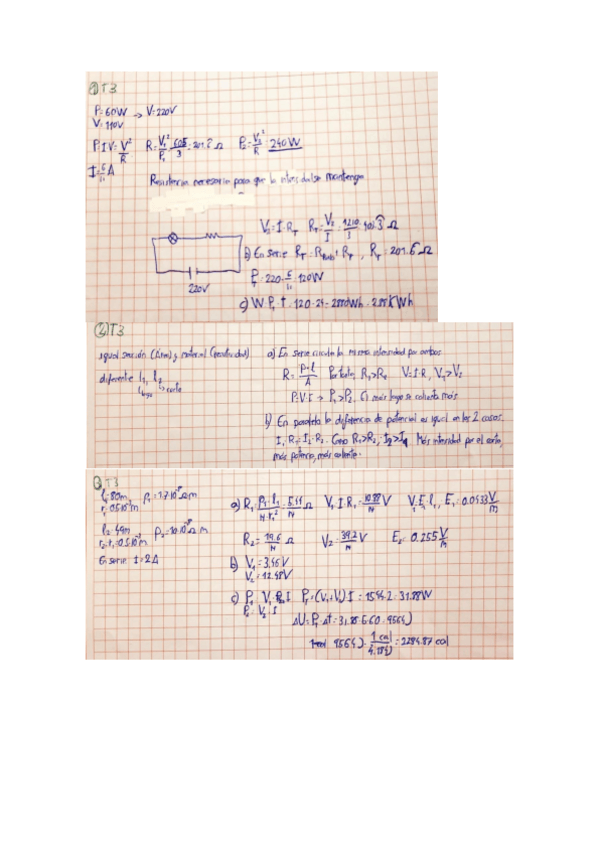 ① T3
P=60W → V=220V
V=110V
P=IV=V²/R R=V₁²/P₁=605/3=201.6̂ Ω P₂=V₂²/R=240W
I=6/11 A
Resistencia necesaria para que la intensidad se mantenga
V₂=I·R_T R_T=V₂/I=1210/3=403.3̂ Ω
b) En serie R_T=R_Bomb+R_r, R_r=201.6̂ Ω
220V
P_T=220·6/11=120W
c) W=P_T·t=120·24=2880Wh=2.88KWh
② T3
igual sección (Área) y material (resistividad)
diferente l₁, l₂
larga corto
a) En serie circula la misma intensidad por ambos
R=ρ·l/A Por tanto, R₁>R₂ V=I·R, V₁>V₂
P=V·I → P₁>P₂, El más largo se calienta más
b) En paralelo la diferencia de potencial es igual en los 2 casos.
I₁R₁=I₂·R₂. Como R₁>R₂, I₂>I₁. Más intensidad por el corto,
más potencia, más caliente.
③ T3
l₁=80m, ρ₁=1.7·10⁻⁸ Ωm
r₁=0.5·10⁻³m
l₂=49m ρ₂=10·10⁻⁸ Ωm
r₂=r₁=0.5·10⁻³m
En serie I=2A
a) R₁=ρ₁·l₁/π·r₁²=5.44/π Ω V₁=I·R₁=10.88/π V V₁=E₁·l₁, E₁=0.0433 V/m
R₂=19.6/π Ω V₂=39.2/π V E₂=0.255 V/m
b) V₁=3.46V
V₂=12.48V
c) P₁=V₁·I P_T=(V₁+V₂)I=15.94·2=31.88W
P₂=V₂·I
ΔU=P_T·Δt=31.88·5·60=9564J
9564J·1cal/4.184J=2284.87 cal